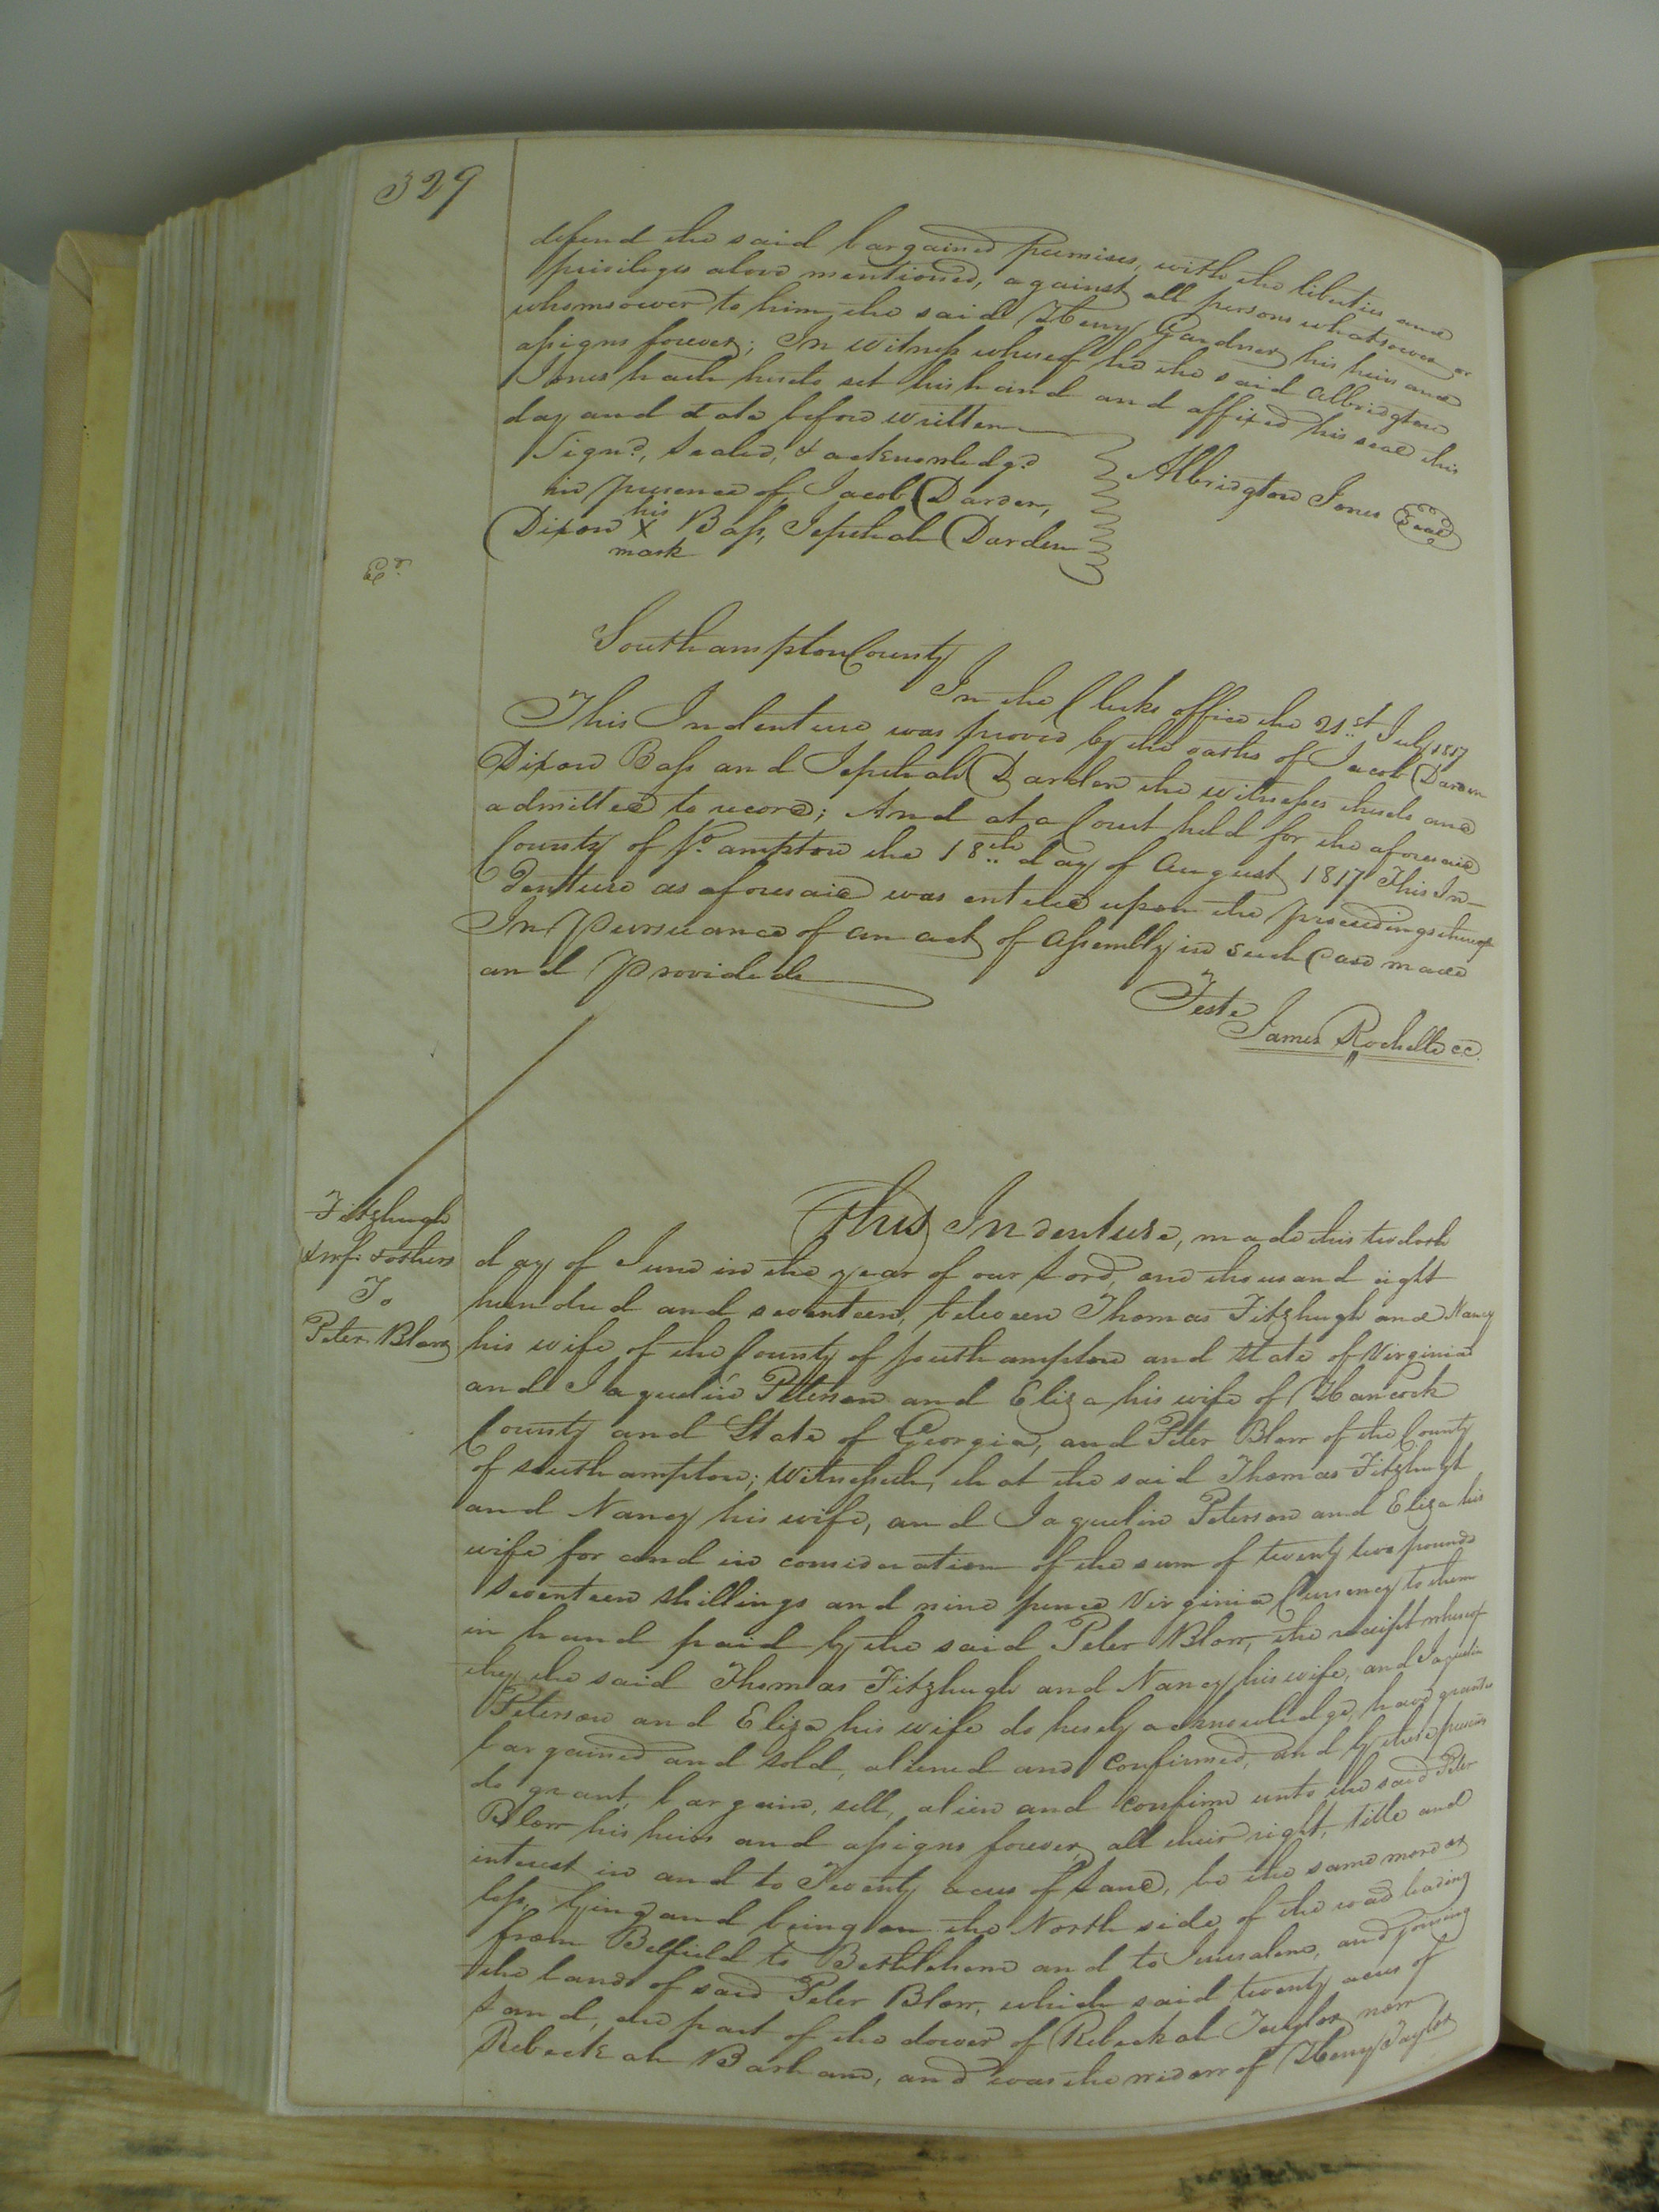 329
defend the said bargained premises, with the liberties and
privileges above mentioned, against all persons whatsoever or
whomsoever to him, the said Henry Gardner his heirs and
assigns forever; In witness whereof he the said Albridgton
Jones hath hereto set his hand and affixed his seal this
day and date before written
Signd, Sealed, & acknowledgd
in presence of Jacob Darden,
Dixon his X mark Bass, Jepthah Darden
Albridgton Jones Seal
Exd
Southampton County
In the Clerks office the 21st July 1817
This Indenture was proved by the oaths of Jacob Darden
Dixon Bass and Jepthah Darden the witnesses thereto and
admitted to record; And at a Court held for the aforesaid
County of So. ampton the 18th day of August 1817 This In-
denture as aforesaid was entered upon the proceedings thereof
In Pursuance of an act of Assembly in such Case made
and Provided
Teste
James Rochelle cc.
Fitzhugh
& wf. & others
To
Peter Blow
This Indenture, made this
day of June in the year of our Lord, one thousand eight
hundred and seventeen, between Thomas Fitzhugh and Nancy
his wife of the County of Southampton and State of Virginia
and Jaquelin Peterson and Eliza his wife of Hancock
County and State of Georgia, and Peter Blow of the County
of Southampton; Witnesseth, that the said Thomas Fitzhugh
and Nancy his wife, and Jaquelin Peterson and Eliza his
wife for and in consideration of the sum of twenty two pounds
Seventeen Shillings and nine pence Virginia Currency to them
in hand paid by the said Peter Blow, the receipt whereof
they the said Thomas Fitzhugh and Nancy his wife, and Jaquelin
Peterson and Eliza his wife do hereby acknowledge, have granted
bargained and sold, aliened and Confirmed, and by these presents
do grant, bargain, sell, alien and Confirm unto the said Peter
Blow his heirs and assigns forever, all their right, title and
interest in and to Twenty acres of Land, be the same more or
less, lying and being on the North side of the road leading
from Belfield to Bethlehem and to Jerusalem, and joining
the lands of said Peter Blow, which said twenty acres of
Land, the part of the dower of Rebeckah Taylor now
Rebeckah Barham, and was the widow of Henry Taylor